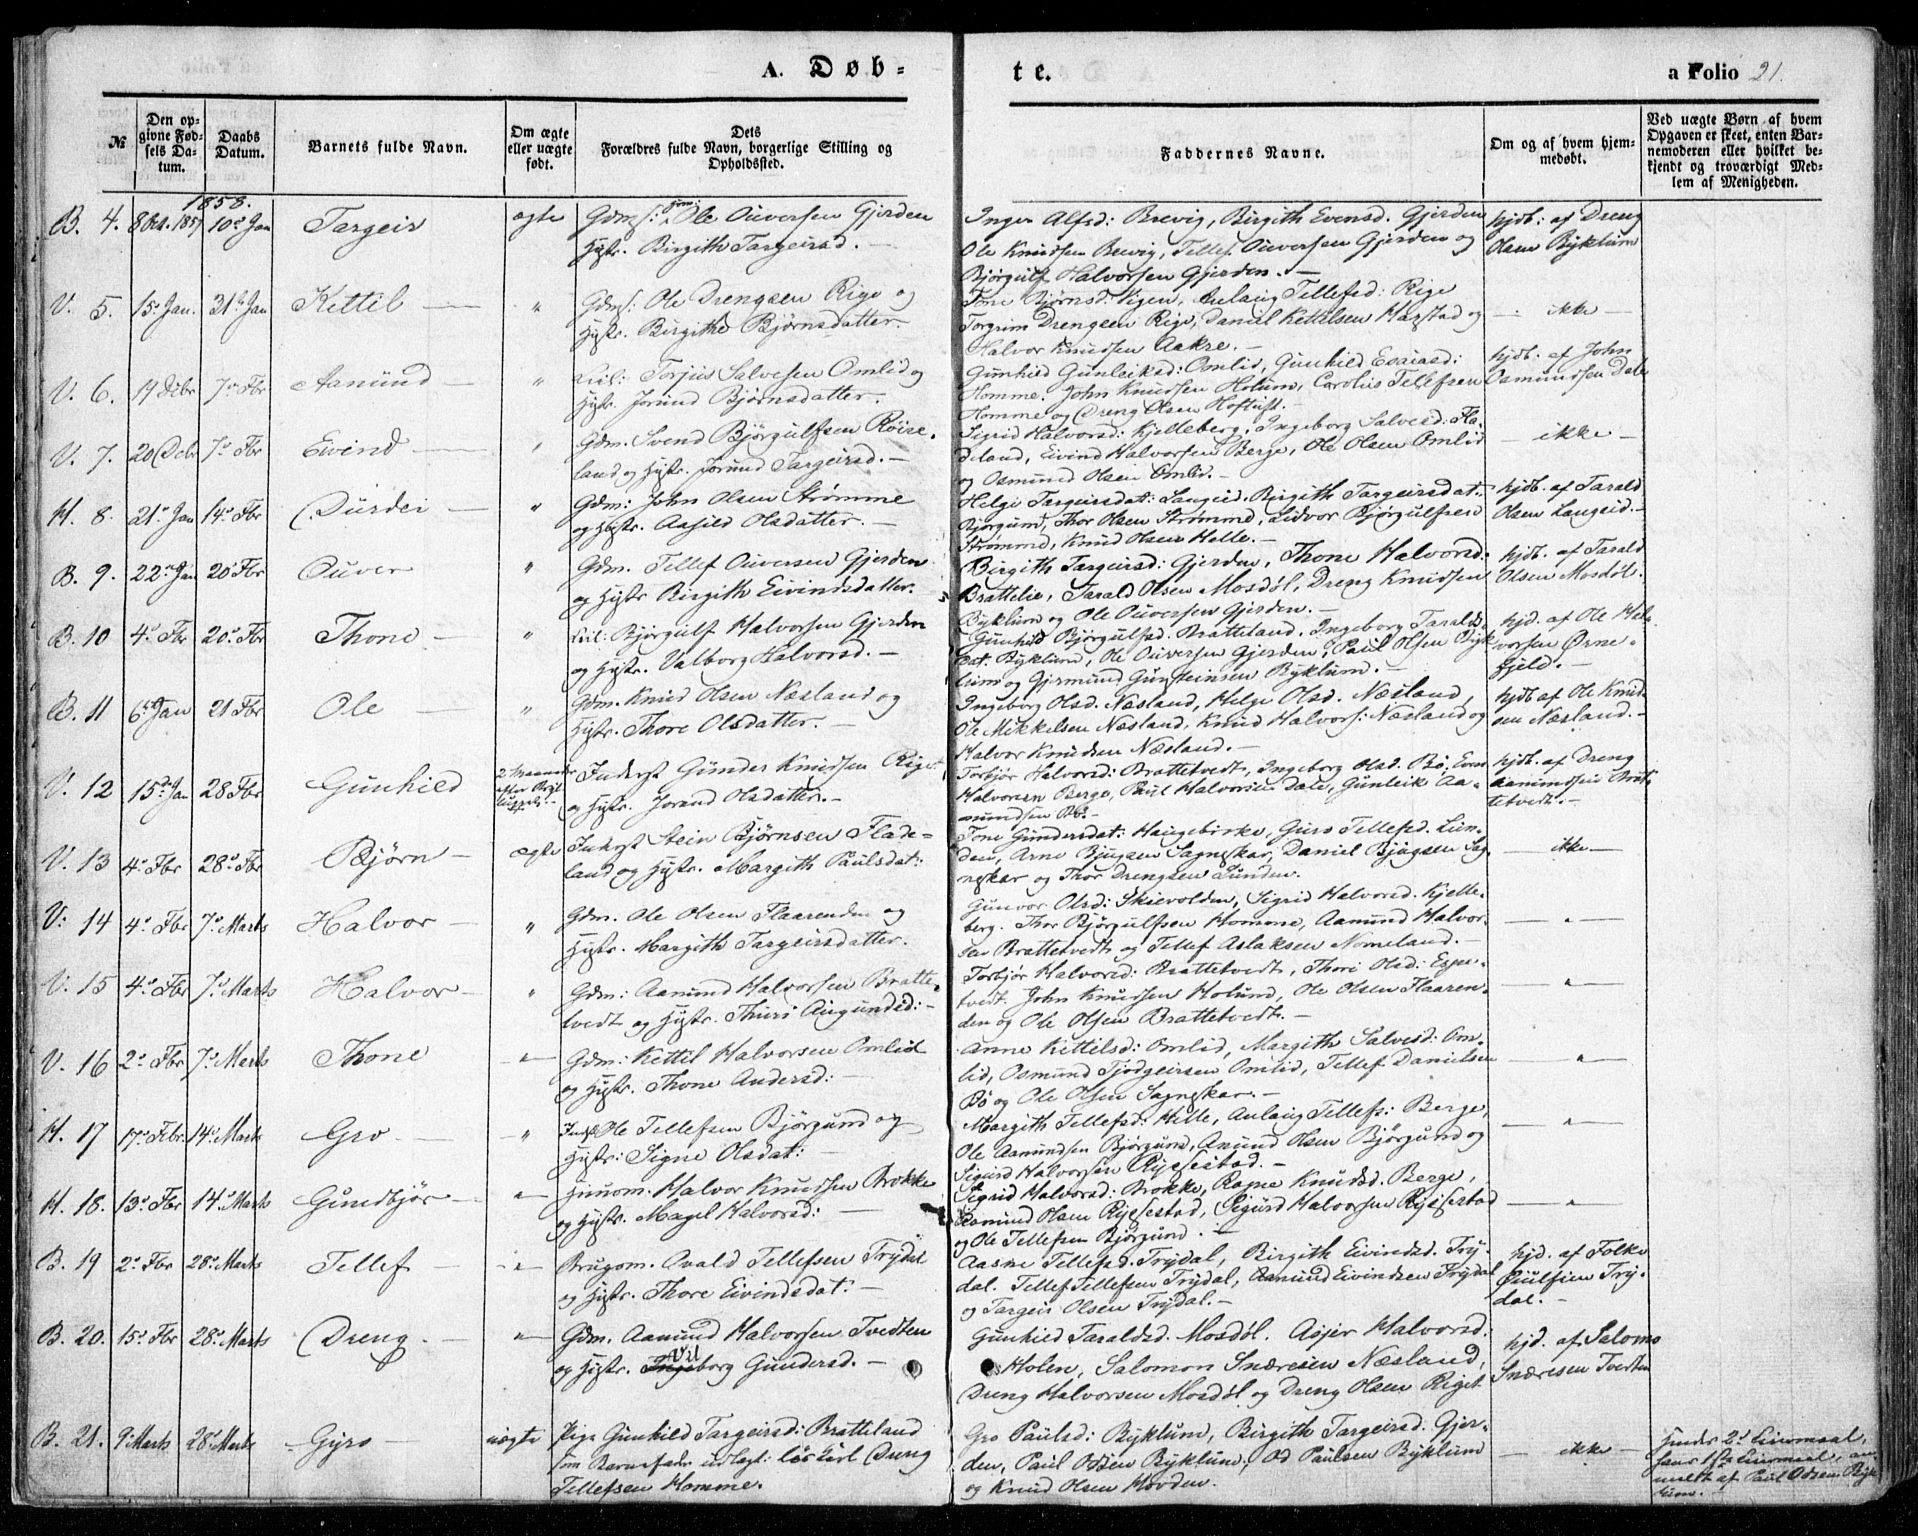 A. Døb- te. a Folio 21.
№
Den opgivne Fødsels Datum.
Daabs Datum.
Barnets fulde Navn.
Om ægte eller uægte født.
Dets Forældres fulde Navn, borgerlige Stilling og Opholdssted.
Faddernes Navne.
Om og af hvem hjemmedøbt.
Ved uægte Børn af hvem Opgaven er skeet, enten Barnemoderen eller hvilket bekjendt og troværdigt Medlem af Menigheden.
1858.
B. 4. 8 Oct. 1857 10 Jan Targeir ægte Gdm: Ole Ouversen Gjerden
Hustr. Birgith Targeirsd. —
Inger Alfsd: Brevig, Birgith Evensd. Gjerden
Ole Knudsen Brevig, Tellef Ouversen Gjerden og
Bjørgulf Halvorsen Gjerden. —
hjdb: af Dreng
Olsen Byklum
V. 5. 15 Jan. 31 Jan Kettil — " Gdm: Ole Drengsen Rige og
Hustr. Birgithe Bjørnsdatter.
Tone Bjørnsd: Vigen, Aulaug Tellefsd: Rige
Torgrim Drengsen Rige, Daniel Kettelsen Harstad og
Halvor Knudsen Aakre. —
— ikke —
V. 6. 19 Debr 7 Fbr Aamund — " Torjus Salvesen Omlid og
Hustr. Jorund Bjørnsdatter. —
Gunhild Gunleiksd: Omlid, Gunhild Esaiasd:
Homme. John Knudsen Holum, Carolus Tellefsen
Homme og Dreng Olsen Hoftuft. —
hjdb: af John
Osmundsen Dale
V. 7. 20 Debr 7 Fbr Eivind — " Gdm. Svend Bjørgulfsen Røise-
land og Hustr. Jorund Targeirsd. —
Sigrid Halvorsd: Kjelleberg, Ingeborg Salvesd: Fla-
deland, Eivind Halvorsen Berge, Ole Olsen Omlid
og Osmund Olsen Omlid. —
— ikke —
H. 8. 21 Jan 14 Fbr Durdei — " Gdm: John Olsen Strømme
og Hustr. Aasild Olsdatter. —
Helge Targeirsdat: Langeid. Birgith Targeirsdat:
Bjørgum, Thor Olsen Strømme, Lidvor Bjørgulfsen
Strømme, Knud Olsen Helle. —
hjdb. af Tarald
Olsen Langeid. —
B. 9. 22 Jan 20 Fbr Ouver " Gdm. Tellef Ouversen Gjerden
og Hustr Birgith Eivindsdatter.
Birgith Targeirsd: Gjerden, Thone Halvorsd:
Brattelie, Tarald Olsen Mosdøl, Dreng Knudsen
Byklum og Ole Ouversen Gjerden. —
hjdb. af Tarald
Olsen Mosdøl.
B. 10 4 Fbr 20 Fbr Thone — " Bjørgulf Halvorsen Gjerden
og Hustr. Valborg Halvorsd. —
Gunhild Bjørgulfsd. Bratteland, Ingeborg Taralds-
dat. Byklum, Ole Ouversen Gjerden, Paul Olsen Byk-
lum og Gjermund Gunsteinsen Byklum. —
hjd. af Ole Hal-
vorsen Ørne-
fjeld. —
B. 11 6 Jan 21 Fbr Ole — " Gdm. Knud Olsen Næsland og
Hustr. Thore Olsdatter. —
Ingeborg Olsd. Næsland, Helge Olsd. Næsland,
Ole Mikkelsen Næsland, Knud Halvors: Næsland og
Halvor Knudsen Næsland. —
hjdb af Ole Knud-
sen Næsland. —
V. 12 15 Jan 28 Fbr Gunhild 2 Maaneder efter Inderst Gunder Knudsen Riget
og Hustr. Jorand Olsdatter. —
Torbjør Halvorsd: Brattetvedt, Ingeborg Olsd. Bø, Even
Halvorsen Berge, Paul Halvorsen Dale, Gunleik Aa-
mundsen Bø. —
hjdb. af Dreng
Aamundsen Brat-
tetvedt. —
V. 13 4 Fbr 28 Fbr Bjørn — ægte Inderst Stein Bjørnsen Flade-
land og Hustr. Margith Paulsdat:
Tone Gundersdat: Haugebirke, Guro Tellefsd. Lun-
den, Arne Bjugsen Sagneskar, Daniel Bjugsen Sag-
neskar og Thor Drengsen Lunden.
— ikke —
V: 14 4 Fbr 7 Marts Halvor — " Gdm. Ole Olsen Flaarenden og
Hustr. Margith Targeirsdatter.
Gunvor Olsd: Skievolden, Sigrid Halvorsd. Kjelle-
berg. Thor Bjørgulfsen Homme, Aamund Halvor-
sen Brattetvedt og Tellef Aslaksen Nomeland. —
— " —
V. 15 4 Fbr 7 Marts Halvor — " Gdm: Aanund Halvorsen Bratte-
tvedt og Hustr. Thuri Augundsd: —
Torbjør Halvorsd: Brattetvedt, Thori Olsd: Espe-
tvedt. John Knudsen Holund, Ole Olsen Flaaren-
den og Ole Olsen Brattetvedt. —
— " —
V. 16 2 Fbr 7 Marts Thone — " — Gdm: Kettil Halvorsen Omlid
og Hustr. Thone Andersd: —
Anne Kittilsd: Omlid, Margith Salvesd: Om-
lid, Osmund Tjodgeirsen Omlid, Tellef Danielsen
Bø og Ole Olsen Sagneskar. —
— " —
H. 17 17 Febr. 14 Marts Gro — — " Ole Tellefsen Bjørgund og
Hustr: Signe Olsdat: —
Margith Tellefsd: Helle, Aulaug Tellefs: Berge,
Ole Aamundsen Bjørgund, Anund Olsen Bjørgund og
Sigurd Halvorsen Rysestad. —
— " —
H. 18. 13 Fbr 14 Marts Gundbjør — " — Halvor Knudsen Brokke
og Hustr. Magel Halvorsd: —
Sigrid Halvorsd: Brokke, Ragne Knudsd. Berge,
Aamund Olsen Rysestad, Sigurd Halvorsen Rysestad
og Ole Tellefsen Bjørgund. —
— " —
B. 19 2 Fbr 28 Marts Tellef — — " — Brugsm. Avald Tellefsen Trydal
og Hustr. Thore Eivindsdat: —
Aasne Tellefsd. Trydal, Birgith Eivindsd. Try-
dal. Tellef Tellefsen Trydal, Aamund Eivindsen Trydal
og Targeir Olsen Trydal. —
hjd. af Folke
Try-
dal. —
B. 20. 15 Fbr 28 Marts Dreng. — " — Gdm. Aamund Halvorsen Tvedten
og Hustr. Ingeborg Gundersd. —
Gunhild Taraldsd. Mosdøl. Asjer Halvorsd.
Holen, Salomon Snæresen Næsland,
Dreng Halvorsen Mosdøl og Dreng Olsen Riget
hjd. af Salomo
Snæresen Tvedten
B. 21. 9 Marts 28 Marts Gyro — uægte Pige Gunhild Targeirsd: Bratteland
som Barnefader udlagt: løs Karl Dreng
Tellefsen Homme.
Gro Paulsd: Byklum, Birgith Targeirsd: Gjer-
den, Paul Odsen Byklum, Od Paulsen Byklum
og Knud Olsen Hovden.
— ikke —
hendes 2 Leiermaal,
hans 1ste Leiermaal, an-
meldt af Paul Odsen Byk-
lum. —